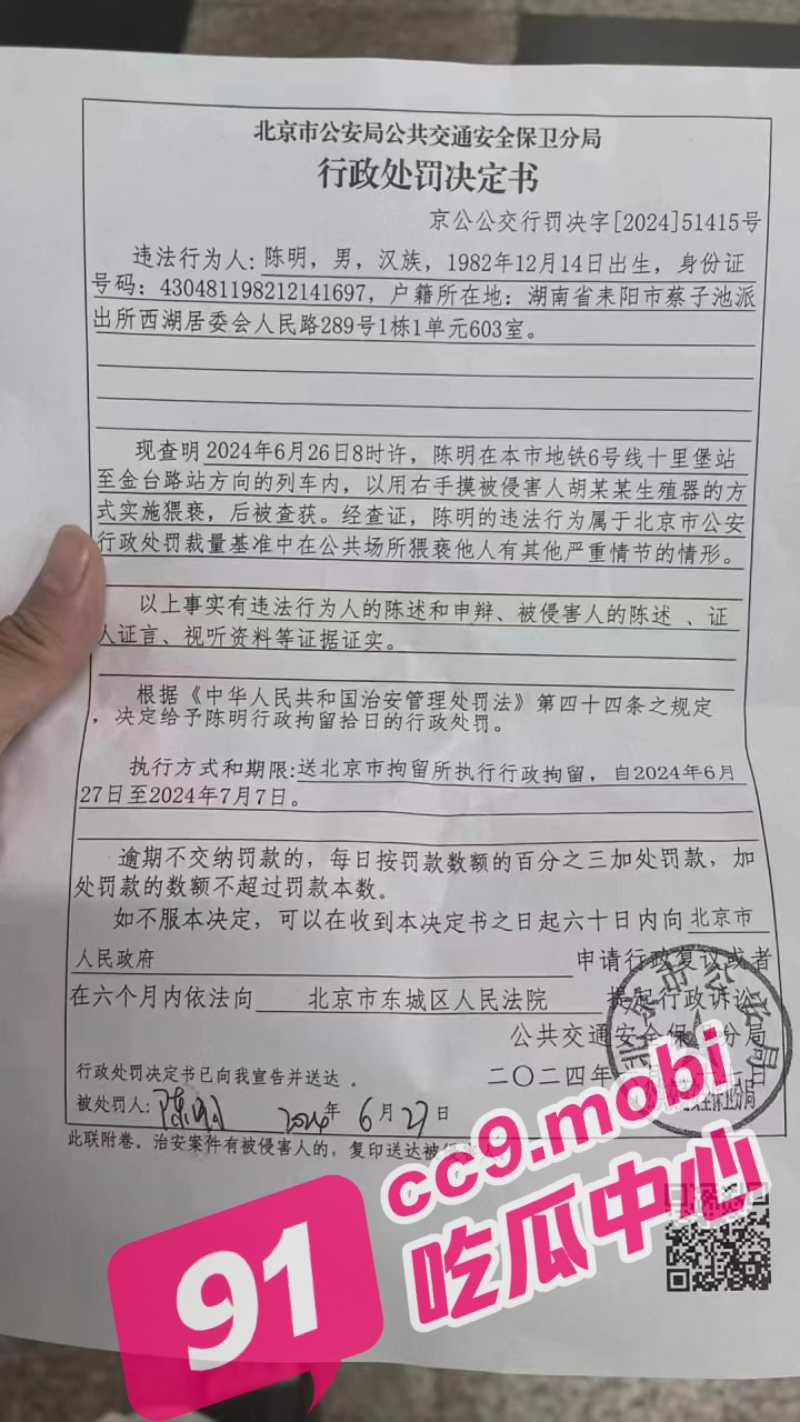 北京市公安局公共交通安全保卫分局
行政处罚决定书
京公公交行罚决字[2024]51415号
违法行为人:陈明，男，汉族，1982年12月14日出生，身份证
号码：430481198212141697，户籍所在地：湖南省耒阳市蔡子池派
出所西湖居委会人民路289号1栋1单元603室。
现查明2024年6月26日8时许，陈明在本市地铁6号线十里堡站
至金台路站方向的列车内，以用右手摸被侵害人胡某某生殖器的方
式实施猥亵，后被查获。经查证，陈明的违法行为属于北京市公安
行政处罚裁量基准中在公共场所猥亵他人有其他严重情节的情形。
以上事实有违法行为人的陈述和申辩、被侵害人的陈述 、证
人证言、视听资料等证据证实。
根据《中华人民共和国治安管理处罚法》第四十四条之规定
，决定给予陈明行政拘留拾日的行政处罚。
执行方式和期限:送北京市拘留所执行行政拘留，自2024年6月
27日至2024年7月7日。
逾期不交纳罚款的，每日按罚款数额的百分之三加处罚款，加
处罚款的数额不超过罚款本数。
如不服本决定，可以在收到本决定书之日起六十日内向北京市
人民政府 申请行政复议或者
在六个月内依法向 北京市东城区人民法院 提起行政诉讼
公共交通安全保卫分局
行政处罚决定书已向我宣告并送达 。 二〇二四年
被处罚人: 陈明 2024年 6月27日
此联附卷。治安案件有被侵害人的，复印送达被
北京市公安局
cc9.mobi
91 吃瓜中心